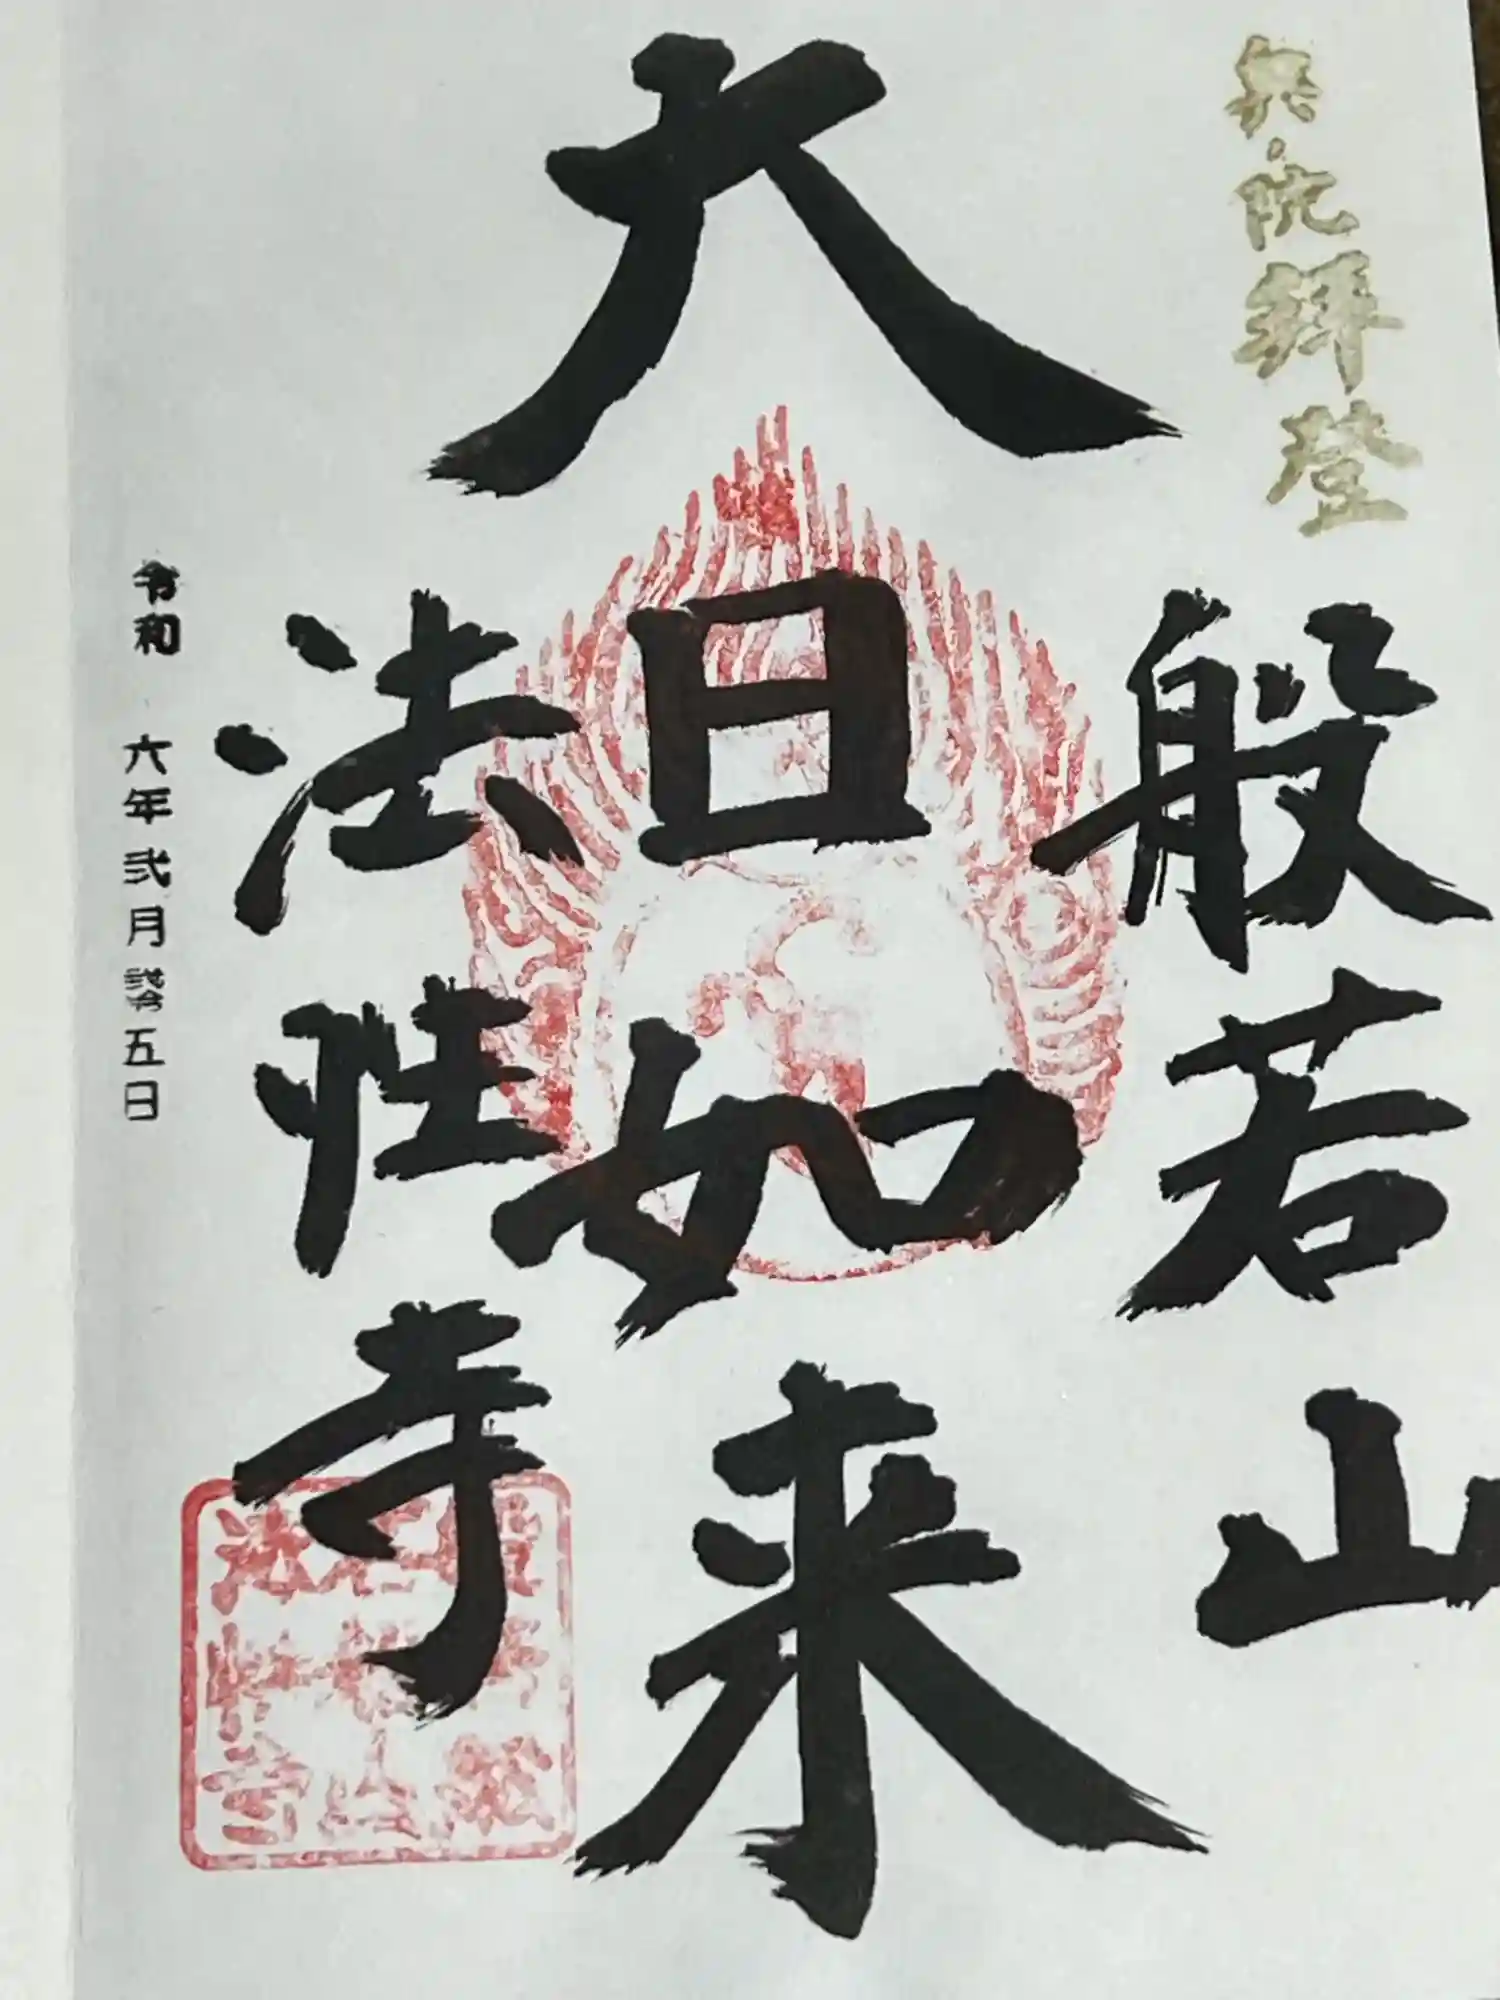 奥之院拝登
般若山
大日如来
法性寺
令和 六年弐月零五日